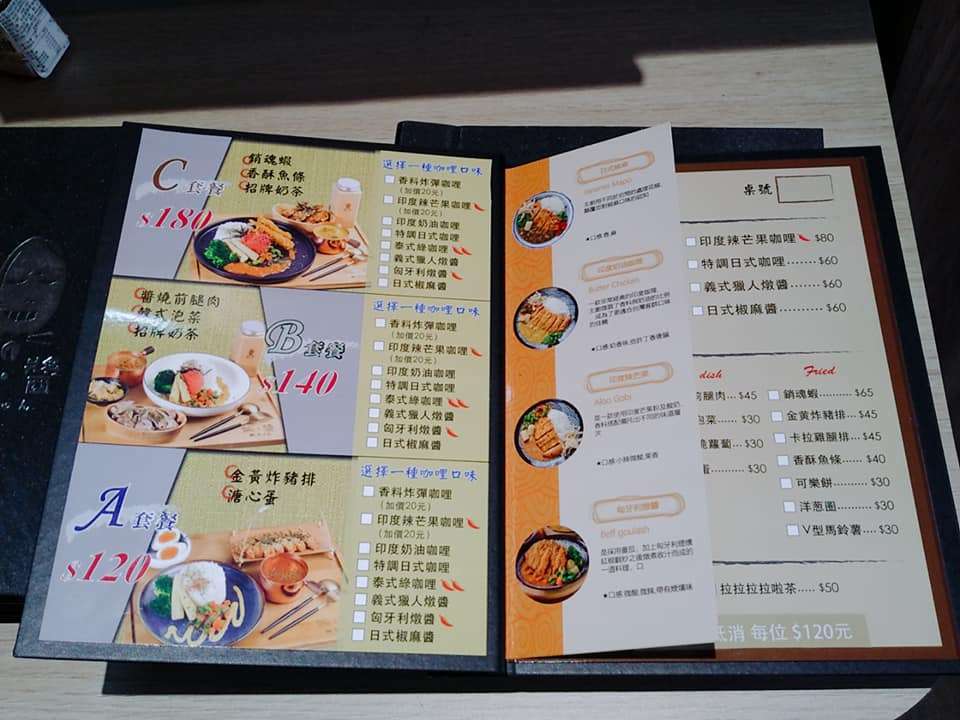 C 套餐
$180
銷魂蝦
香酥魚條
招牌奶茶
選擇一種咖哩口味
香料炸彈咖哩
(加價20元)
印度辣芒果咖哩
(加價20元)
印度奶油咖哩
特調日式咖哩
泰式綠咖哩
義式獵人燉醬
匈牙利燉醬
日式椒麻醬
醬燒前腿肉
韓式泡菜
招牌奶茶
B 套餐
$140
選擇一種咖哩口味
香料炸彈咖哩
(加價20元)
印度辣芒果咖哩
(加價20元)
印度奶油咖哩
特調日式咖哩
泰式綠咖哩
義式獵人燉醬
匈牙利燉醬
日式椒麻醬
A 套餐
$120
金黃炸豬排
溏心蛋
選擇一種咖哩口味
香料炸彈咖哩
(加價20元)
印度辣芒果咖哩
(加價20元)
印度奶油咖哩
特調日式咖哩
泰式綠咖哩
義式獵人燉醬
匈牙利燉醬
日式椒麻醬
日式椒麻
★口感:香麻
印度奶油咖哩
Butter Chicken
印度辣芒果
Aloo Gobi
★口感:小辣微酸,果香
匈牙利燉醬
Beff goulash
是採用番茄、加上匈牙利煙燻
一道料理、口
★口感:微酸,微辣,帶有煙燻味
桌號
印度辣芒果咖哩 $80
特調日式咖哩 $60
義式獵人燉醬 $60
日式椒麻醬 $60
dish
前腿肉 $45
泡菜 $30
蘿蔔 $30
蛋 $30
Fried
銷魂蝦 $65
金黃炸豬排 $45
卡拉雞腿排 $45
香酥魚條 $40
可樂餅 $30
洋蔥圈 $30
V型馬鈴薯 $30
拉拉拉拉啦茶 $50
低消 每位 $120元